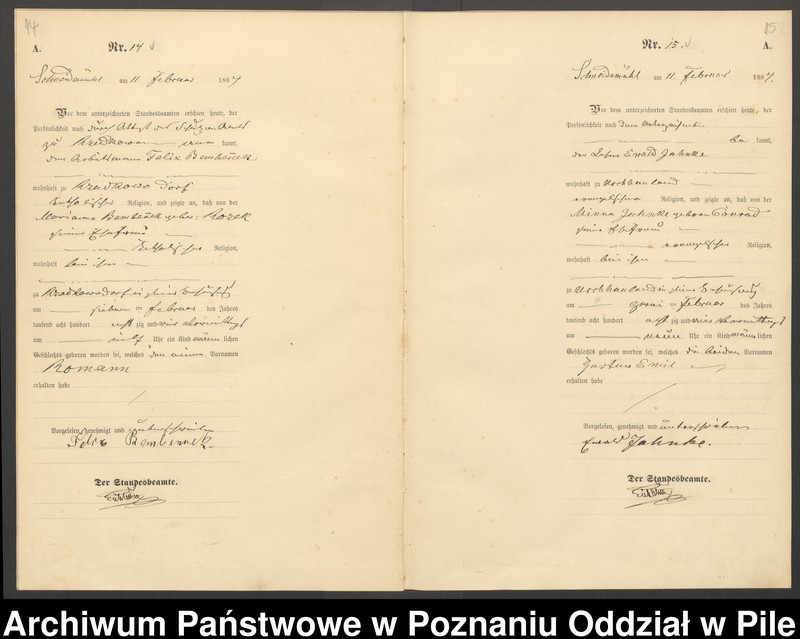 14
A.
Nr. 14
am 11 Februar 1884
Vor dem unterzeichneten Standesbeamten erschien heute, der
Persönlichkeit nach durch Attest des
zu kannt,
den Arbeitsmann Felix
wohnhaft zu Kradkowo Dorf
katholischer Religion, und zeigte an, daß von der
Marianne gebor: Rozek
seiner Ehefrau
katholischer Religion,
wohnhaft bei ihm
zu Kradkowo Dorf in seiner Behausung
am sieben ten Februar des Jahres
tausend acht hundert acht zig und vier Vormittags
um Uhr ein Kind männlichen
Geschlechts geboren worden sei, welches den einen Vornamen
Romann
erhalten habe
Vorgelesen, genehmigt und unterschrieben
Felix
Der Standesbeamte.
15
Nr. 15.
A.
am 11 Februar 1884.
Vor dem unterzeichneten Standesbeamten erschien heute, der
Persönlichkeit nach dem Unterzeichneten
be kannt,
der Ewald Jahnke
wohnhaft zu Uschhauland
evangelischer Religion, und zeigte an, daß von der
Minna Jahnke geboren Conrad
seiner Ehefrau
evangelischer Religion,
wohnhaft bei ihm
zu Uschhauland in seiner Behausung
am zwei ten Februar des Jahres
tausend acht hundert acht zig und vier Vormittags
um neun Uhr ein Kind männlichen
Geschlechts geboren worden sei, welches die beiden Vornamen
Gustav Emil
erhalten habe
Vorgelesen, genehmigt und unterschrieben
Ewald Jahnke.
Der Standesbeamte.
Archiwum Państwowe w Poznaniu Oddział w Pile